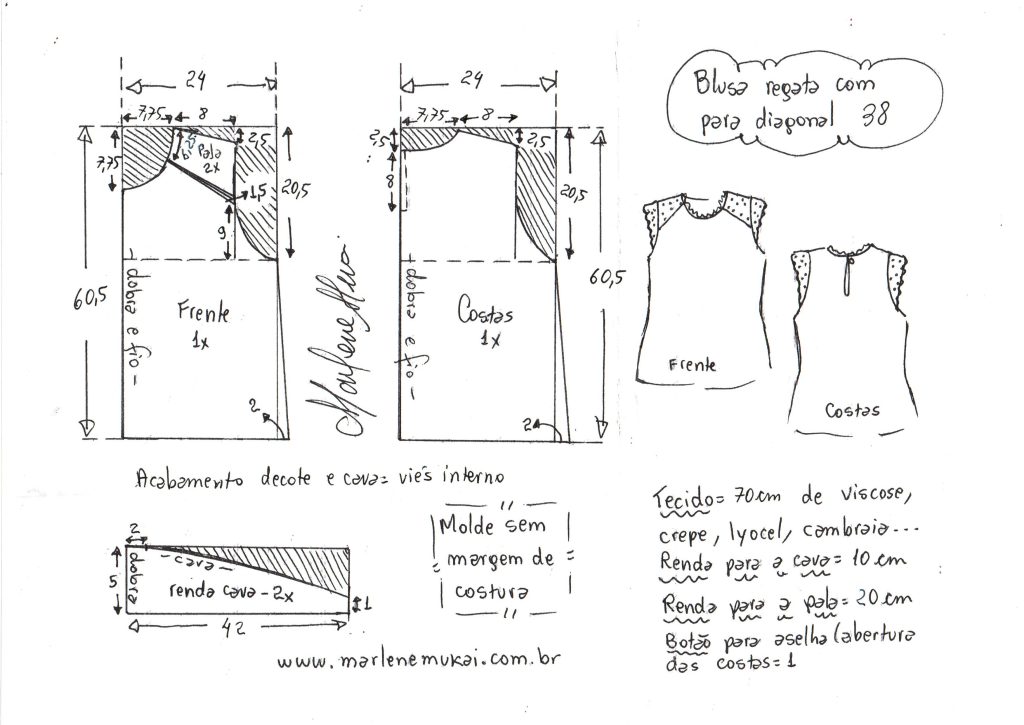 Blusa regata com
para diagonal 38
24
7,75
8
2,5
7,75
Pala
2x
1,5
20,5
9
60,5
dobra e fio
Frente
1x
2
Marlene Mukai
24
7,75
8
2,5
2,5
8
20,5
60,5
dobra e fio
Costas
1x
2
Frente
Costas
Acabamento decote e cava= viés interno
2
5
dobra
cava
renda cava - 2x
1
42
Molde sem
margem de
costura
www.marlenemukai.com.br
Tecido= 70cm de viscose,
crepe, lyocel, cambraia...
Renda para a cava= 10cm
Renda para a pala= 20cm
Botão para aselha (abertura
das costas= 1